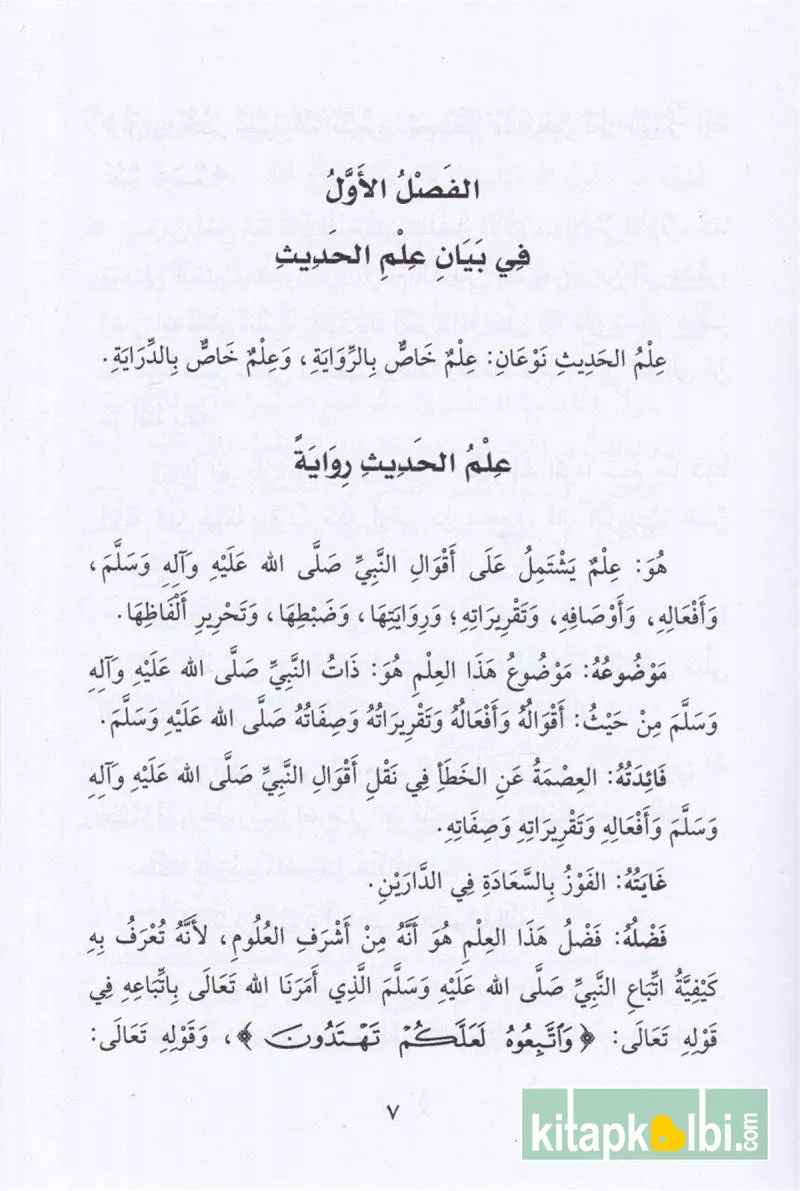 الفَصْلُ الأَوَّلُ
في بَيَانِ عِلْمِ الحَدِيثِ
عِلْمُ الحَدِيثِ نَوْعَانِ: عِلْمٌ خَاصٌّ بِالرِّوَايَةِ، وَعِلْمٌ خَاصٌّ بِالدِّرَايَةِ.
عِلْمُ الحَدِيثِ رِوَايَةً
هُوَ: عِلْمٌ يَشْتَمِلُ عَلَى أَقْوَالِ النَّبِيِّ صَلَّى الله عَلَيْهِ وَآلِهِ وَسَلَّمَ،
وَأَفْعَالِهِ، وَأَوْصَافِهِ، وَتَقْرِيرَاتِهِ؛ وَرِوَايَتِهَا، وَضَبْطِهَا، وَتَحْرِيرِ أَلْفَاظِهَا.
مَوْضُوعُهُ: مَوْضُوعُ هَذَا العِلْمِ هُوَ: ذَاتُ النَّبِيِّ صَلَّى الله عَلَيْهِ وَآلِهِ
وَسَلَّمَ مِنْ حَيْثُ: أَقْوَالُهُ وَأَفْعَالُهُ وَتَقْرِيرَاتُهُ وَصِفَاتُهُ صَلَّى الله عَلَيْهِ وَسَلَّمَ.
فَائِدَتُهُ: العِصْمَةُ عَنِ الخَطَأِ فِي نَقْلِ أَقْوَالِ النَّبِيِّ صَلَّى الله عَلَيْهِ وَآلِهِ
وَسَلَّمَ وَأَفْعَالِهِ وَتَقْرِيرَاتِهِ وَصِفَاتِهِ.
غَايَتُهُ: الفَوْزُ بِالسَّعَادَةِ فِي الدَّارَيْنِ.
فَضْلُهُ: فَضْلُ هَذَا العِلْمِ هُوَ أَنَّهُ مِنْ أَشْرَفِ العُلُومِ، لأَنَّهُ تُعْرَفُ بِهِ
كَيْفِيَّةُ اتِّبَاعِ النَّبِيِّ صَلَّى الله عَلَيْهِ وَسَلَّمَ الَّذِي أَمَرَنَا الله تَعَالَى بِاتِّبَاعِهِ فِي
قَوْلِهِ تَعَالَى: ﴿وَاتَّبِعُوهُ لَعَلَّكُمْ تَهْتَدُونَ﴾، وَقَوْلِهِ تَعَالَى:
٧
kitapkalbi.com